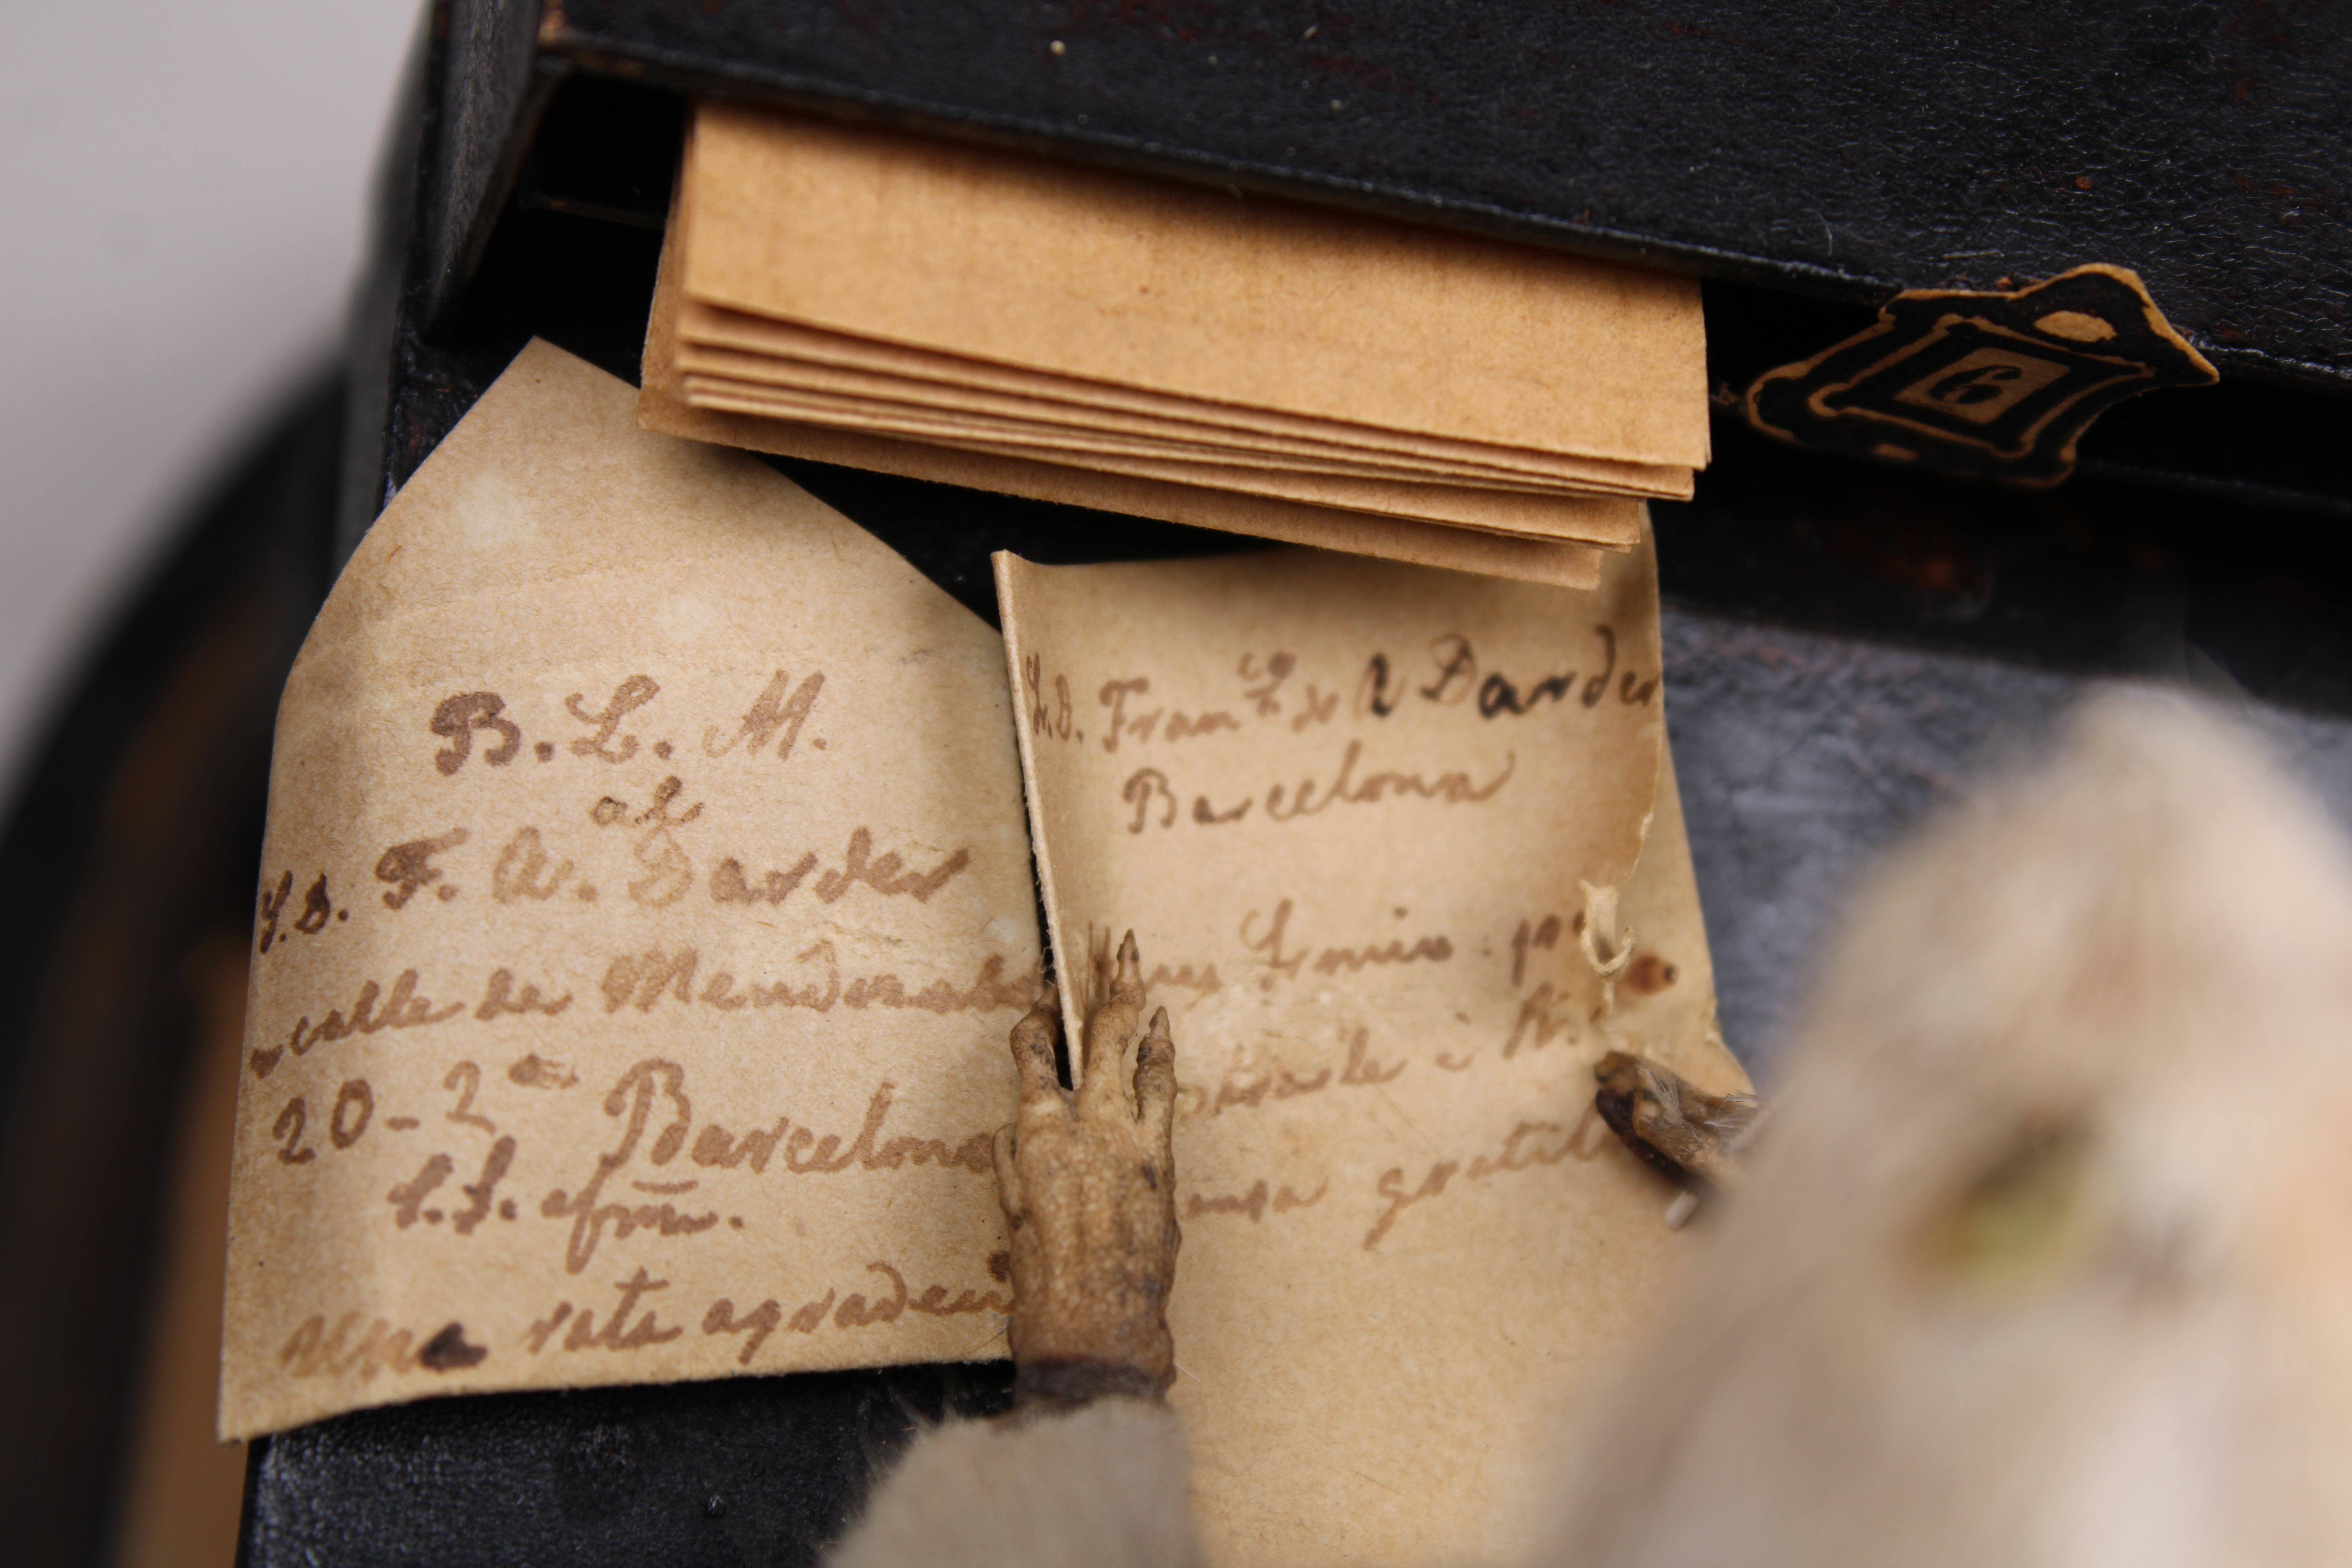 B. L. M.
al
S.D. F. A. Darder
calle de Mendizabal
20-2º Barcelona
S.S. afmo.
Una rata agradeci
S.D. Franco de A Darder
Barcelona
Sr mio:
á
gratit
6